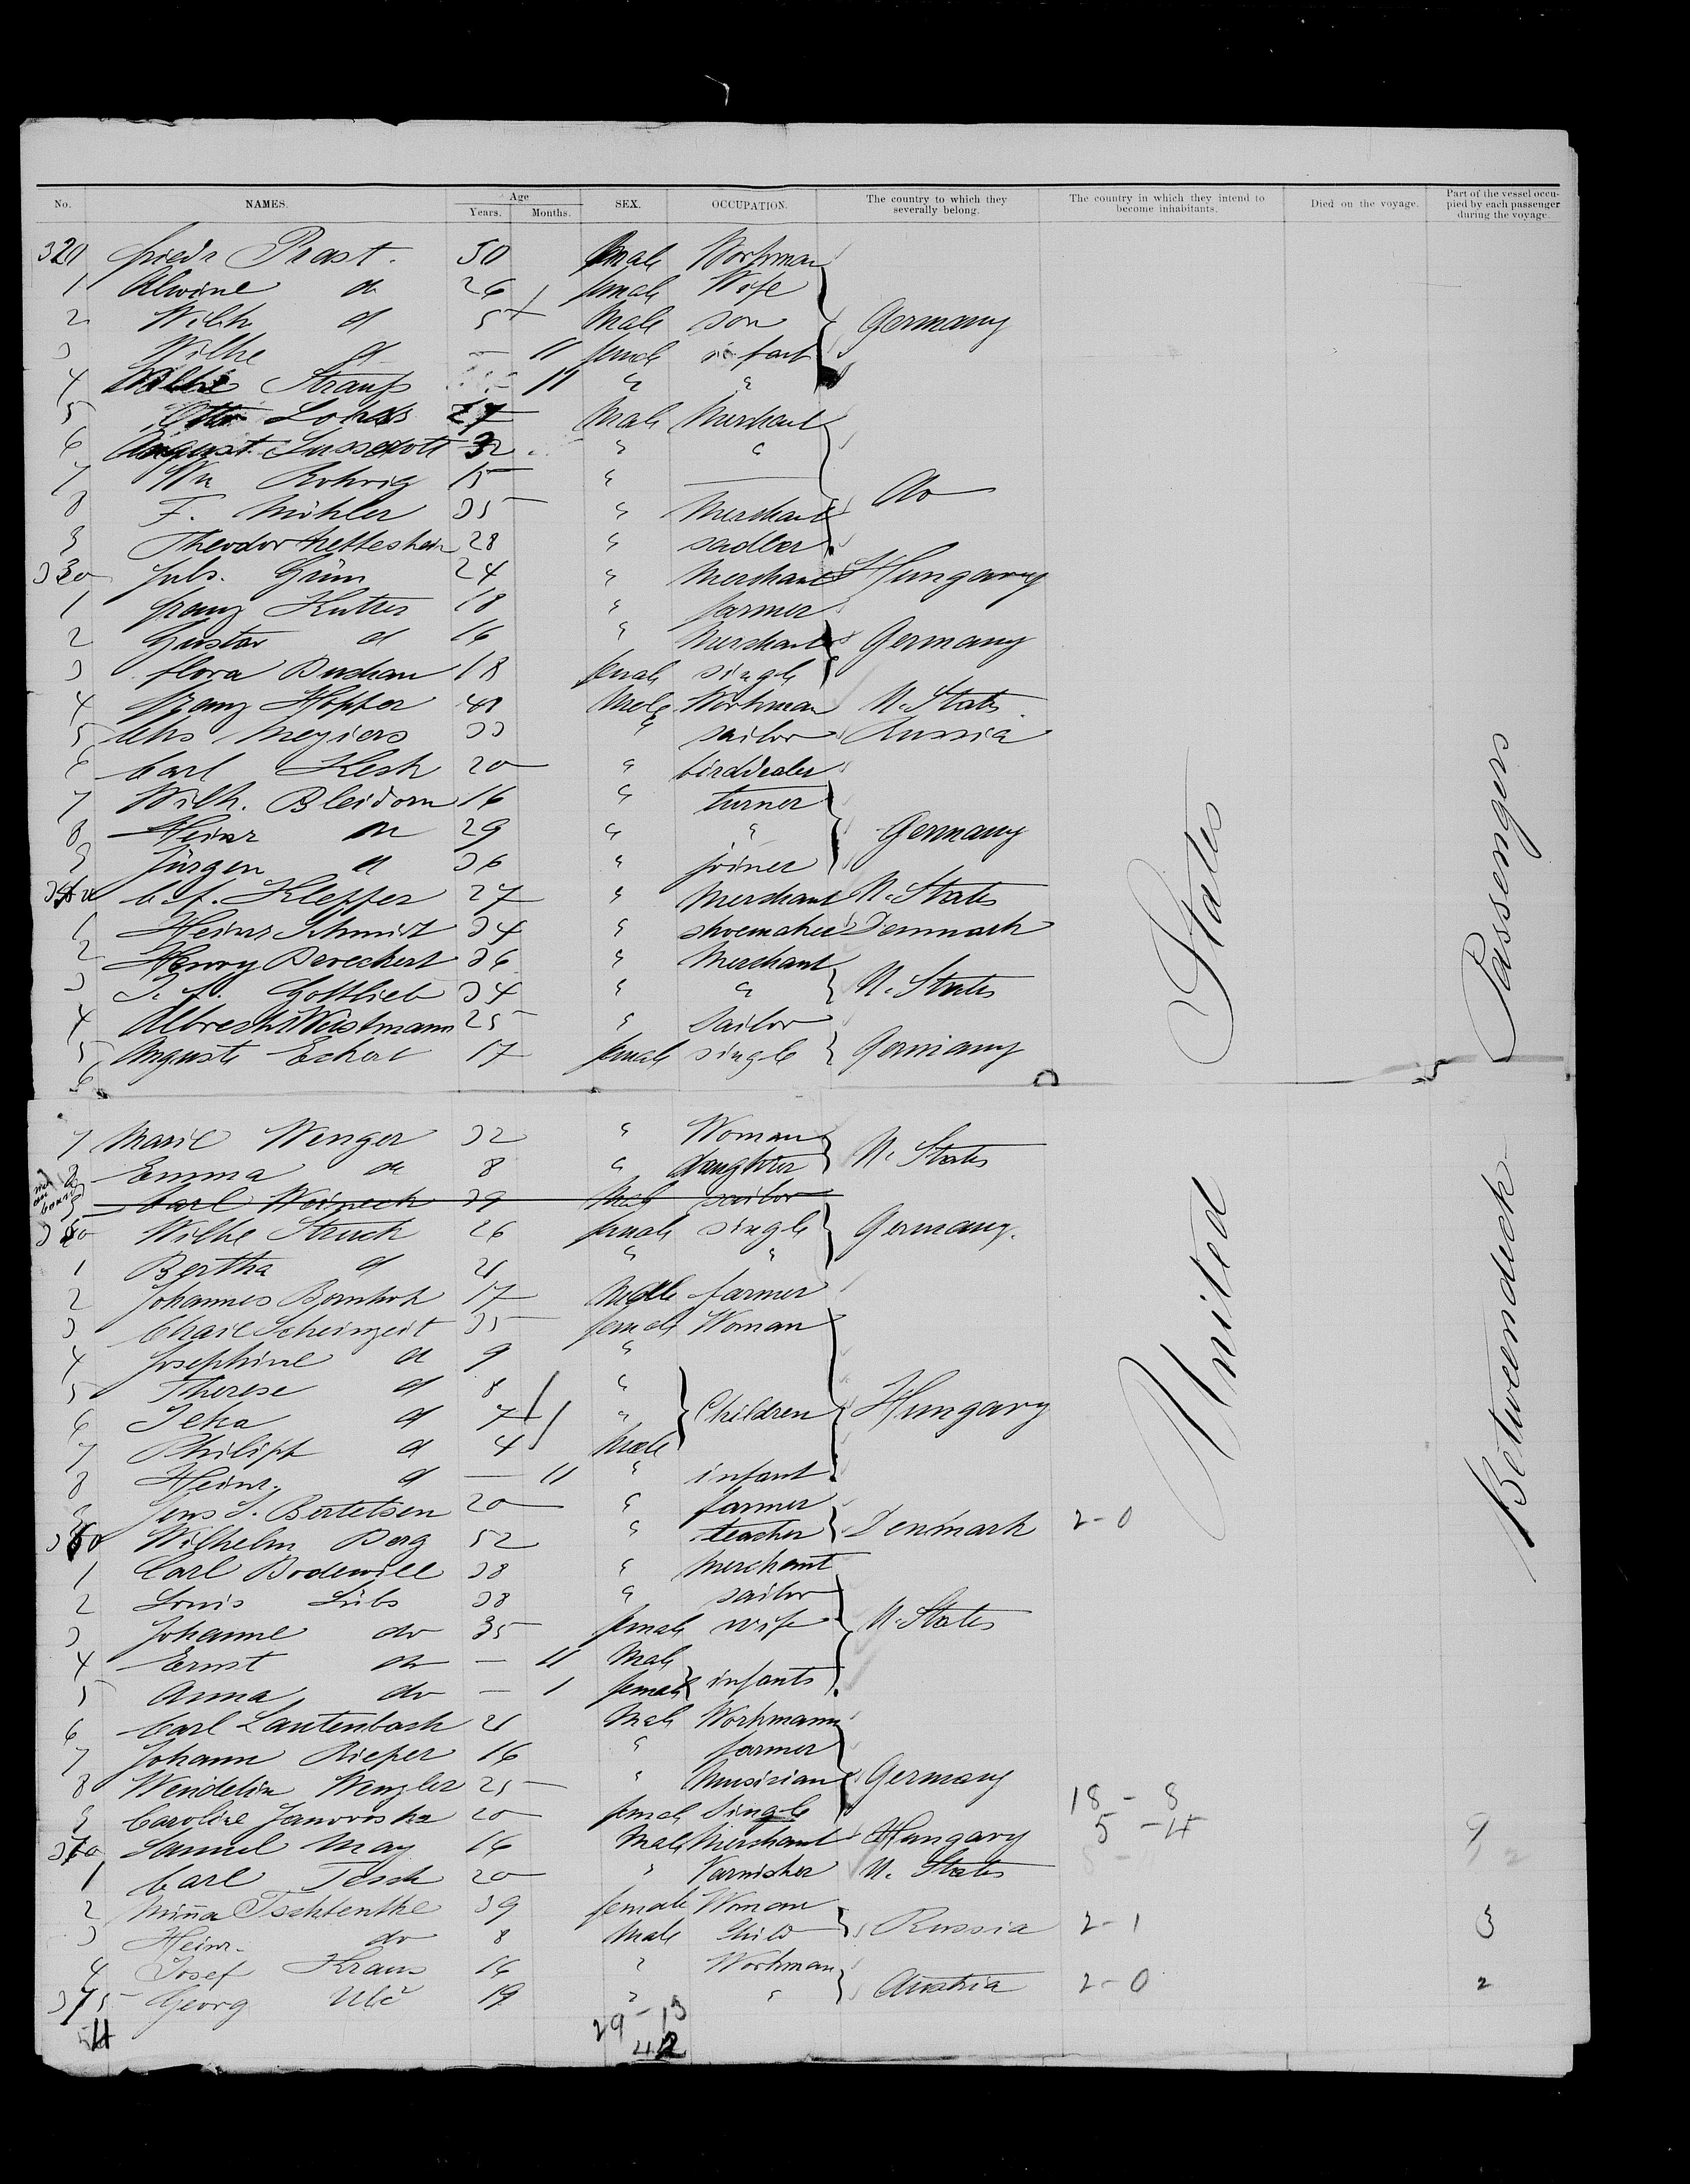 No. NAMES. Age Years. Months. SEX. OCCUPATION. The country to which they severally belong. The country in which they intend to become inhabitants. Died on the voyage. Part of the vessel occupied by each passenger during the voyage.
320 friedr Prast. 30 Male Workman
1 Alwine do 26 female Wife
2 Wilh d 5 Male son Germany
3 Wilhe d — 11 female infant
4 Wilhe Strauß 11 " "
5 Otto Lohss 27 Male Merchant
6 August 32 " "
7 Wm Rohrig 15 " —
8 F. Möhler 35 " Merchant do
9 Theodor 28 " sadler
330 Juls. Grün 24 " Merchant Hungary
1 franz Kutter 18 " farmer
2 Gustav d 16 " Merchant Germany
3 flora 18 female single
4 franz Hopfer 48 Male Workman U. States
5 Meyiers 33 " sailor Russia
6 Carl Kesk 20 " birddealer
7 Wilh. Bleidorn 16 " turner
8 Heinr do 29 " " Germany
9 Jürgen d 36 " joiner
340 C. f. Klepper 27 " Merchant U. States
1 Heinr Schmidt 34 " shoemaker Denmark
2 Henry Derechert 36 " Merchant
3 J. A. Gottlieb 34 " " U. States
4 Albrecht Weistmann 25 " Sailor
5 Auguste Eckert 17 female single Germany
6
7 Marie Wenger 32 " Woman U. States
8 Emma do 8 " daughter
9 Carl Weineck 39 Male sailor
350 Wilhe Struck 26 female single Germany.
1 Bertha d 21 " "
2 Johannes Bornholt 17 Male farmer
3 Scheinzeit 35 female Woman
4 Josephine d 9 "
5 Therese d 8 "
6 Jeka d 7 " Children Hungary
7 Philipp d 4 Male
8 Heinr. d — 11 " infant
9 Jens S. Bertelsen 20 " farmer
360 Wilhelm Berg 52 " teacher Denmark 2-0
1 Carl Bodewill 38 " Merchant
2 Louis Lübs 38 " sailor
3 Johanne do 35 female wife U. States
4 Ernst do — 11 Male
5 Anna do — 1 female infants
6 Carl Lautenbach 21 Male Workmann
7 Johann Rieper 16 " farmer
8 Wendelin Wenzler 25 " Musician Germany
9 Caroline Janovoska 20 female Single 18-8
370 Samuel May 16 Male Merchant Hungary 5-4 9
1 Carl Tesch 20 " Varnisher U. States
2 Mina Tschtenthe 39 female Woman
3 Heinr. do 8 Male Child Russia 2-1 3
4 Josef Kraus 16 " Workman
375 Georg Ulč 19 " " Austria 2-0 2
29-13
42
United States
Betweendeck Passengers